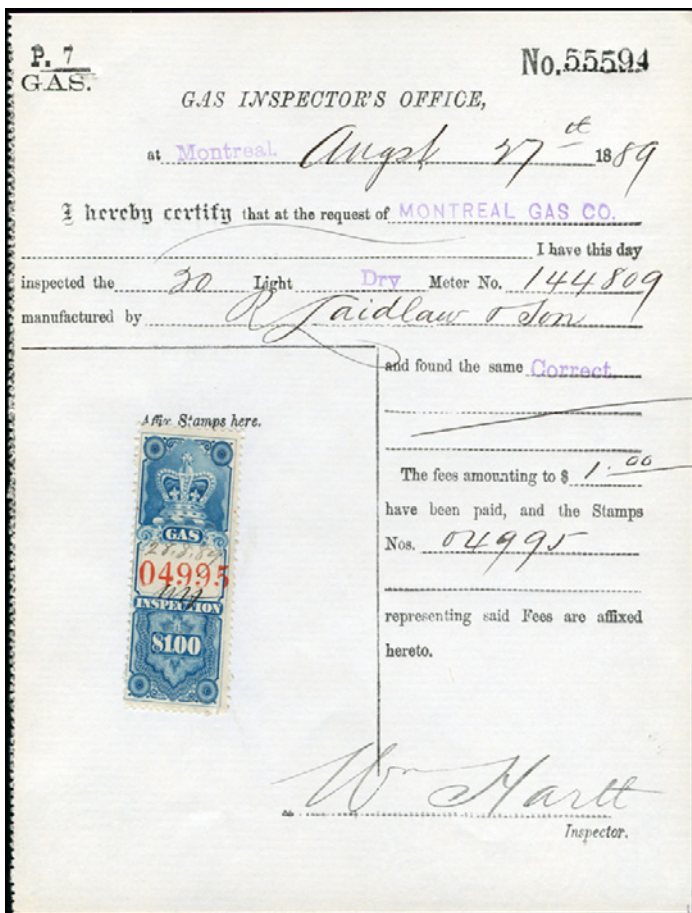 P. 7
GAS.
No. 55594
GAS INSPECTOR'S OFFICE,
at Montreal. Augst 27th 1889
I hereby certify that at the request of MONTREAL GAS CO.
I have this day
inspected the 20 Light Dry Meter No. 144809
manufactured by R Laidlaw & Son
and found the same Correct.
Affix Stamps here.
The fees amounting to $ 1.00
have been paid, and the Stamps
Nos. 04995
representing said Fees are affixed
hereto.
GAS
28.8.89
04995
INSPECTION
$1.00
Wm Hartt
Inspector.